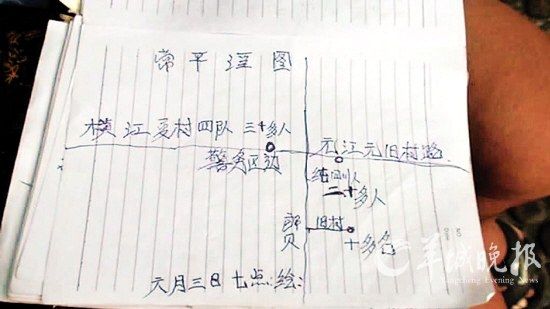 常平淫图
横江夏村四队 三十多人
元江元旧村路
警务区边
二十多人
旧村
十多名
六月三日七点绘:
羊城晚报
Yangcheng Evening News